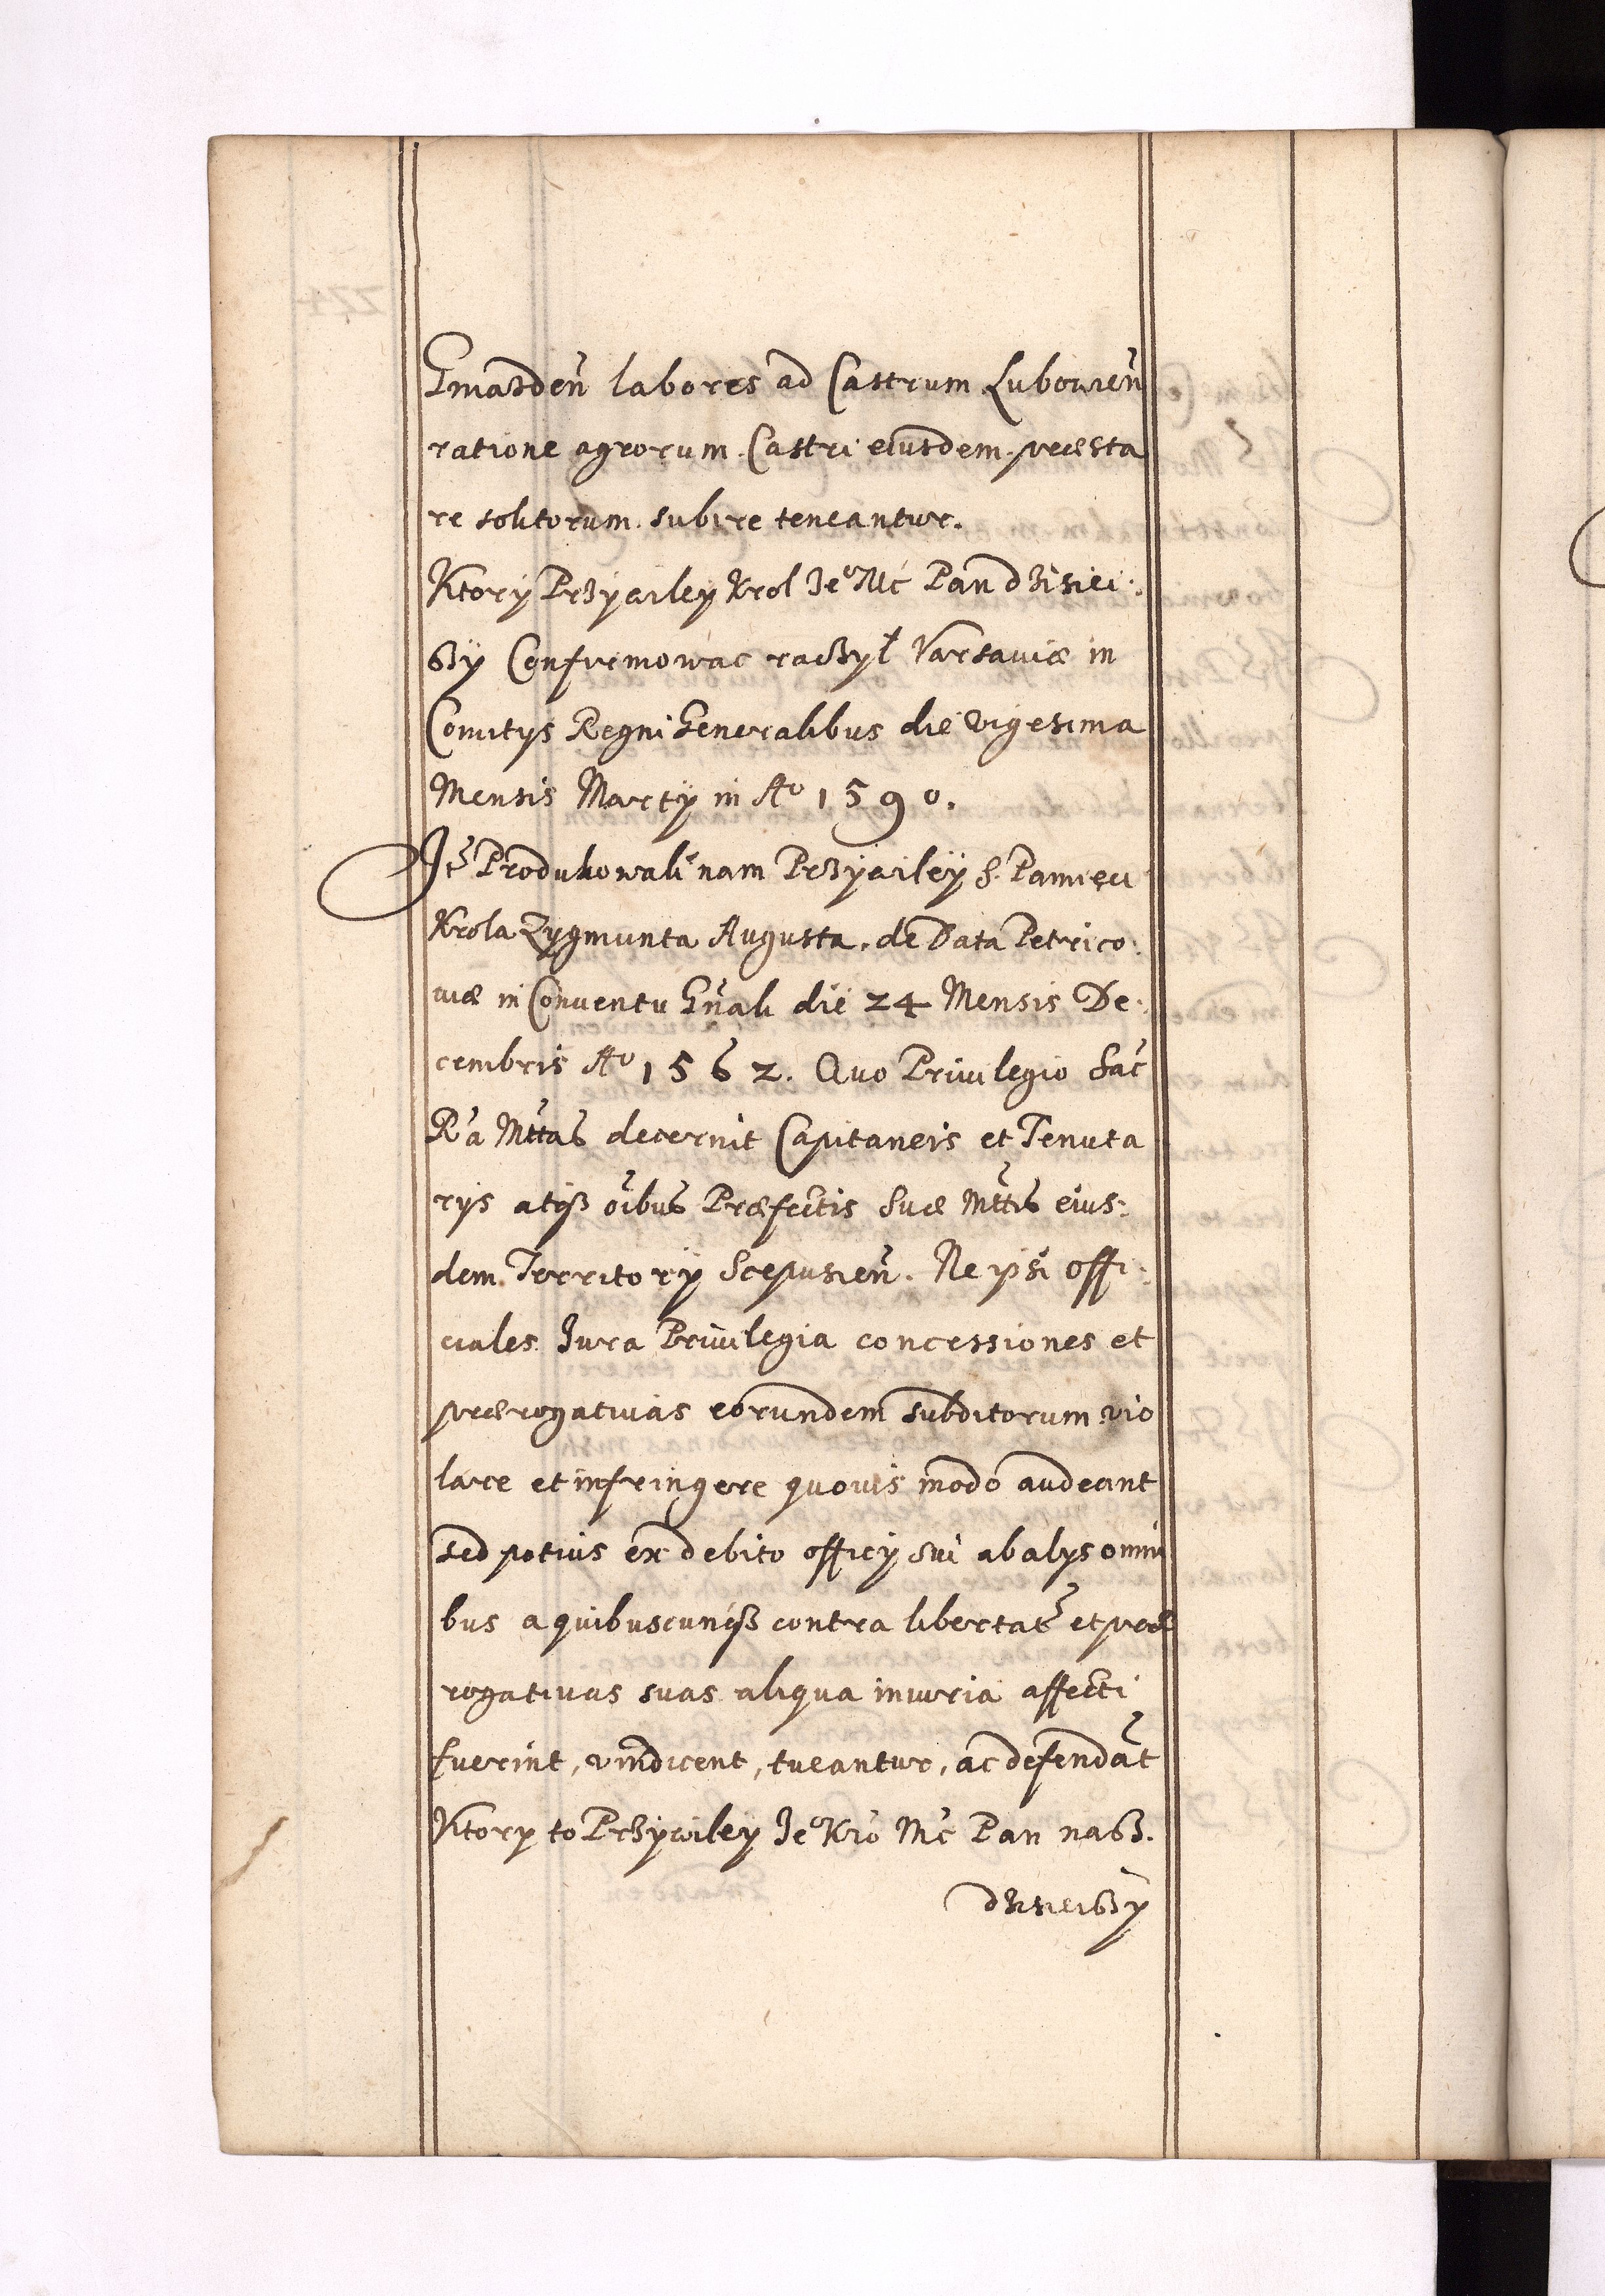 Gmazden̄ labores ad Castrum Lubowien̄
ratione agrorum Castri eiusdem præsta
re solitorum subire teneantur.
Ktory Przywiley Krol Je° Mć Pan dzisiei:
szy Confirmowac raczył Varsauiæ in
Comitys Regni Generalibus die vigesima
Mensis Marty in A° 1590.
Ite Produkowali nam Przywiley S. Pamięci
Krola Zygmunta Augusta. de Data Petrico:
uiæ in Conuentu Gn̄ali die 24 Mensis De:
cembris A° 1562. Quo Priuilegio Sac̄
R'a Mttas decernit Capitaneis et Tenuta
rys atq₃ oībus Præfectis Suæ Mttis eius:
dem Territory Scepusien̄. Ne ipsi offi:
ciales Jura Priuilegia concessiones et
prærogatiuas eorundem subditorum vio
lare et infringere quouis modo audeant
sed potius ex debito officy sui ab alys omni
bus a quibuscunq₃ contra libertat̄ et præ
rogatiuas suas aliqua iniuria affecti
fuerint, vindicent, tueantur, ac defendāt
Ktory to Przywiley Je° Kró Mć Pan nasz.
dzisieiszy